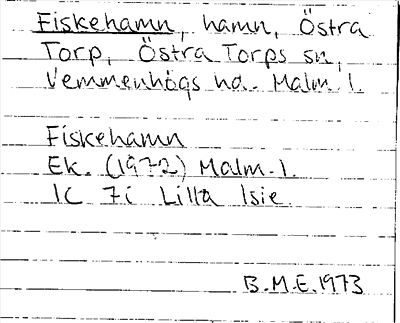 Fiskehamn, hamn, Östra
Torp, Östra Torps sn,
Vemmenhögs hd. Malm. l.
Fiskehamn
Ek. (1972) Malm. l.
1C 7i Lilla Isie.
B.M.E. 1973